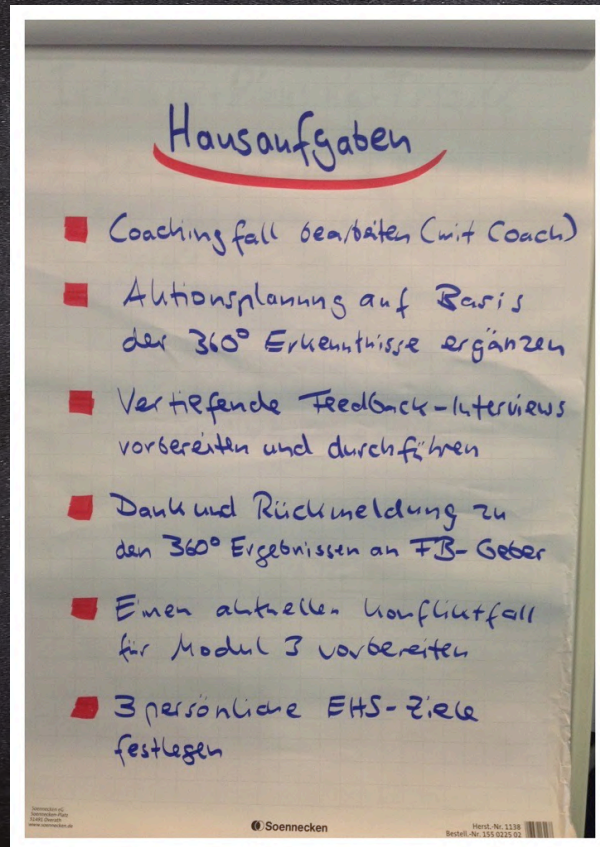 Hausaufgaben
Coachingfall bearbeiten (mit Coach)
Aktionsplanung auf Basis
der 360° Erkenntnisse ergänzen
Vertiefende Feedback-Interviews
vorbereiten und durchführen
Dank und Rückmeldung zu
den 360° Ergebnissen an FB-Geber
Einen aktuellen Konfliktfall
für Modul 3 vorbereiten
3 persönliche EHS-Ziele
festlegen
Soennecken eG
Soennecken-Platz
51491 Overath
www.soennecken.de
Soennecken
Herst.-Nr. 1138
Bestell.-Nr. 155 0225 02